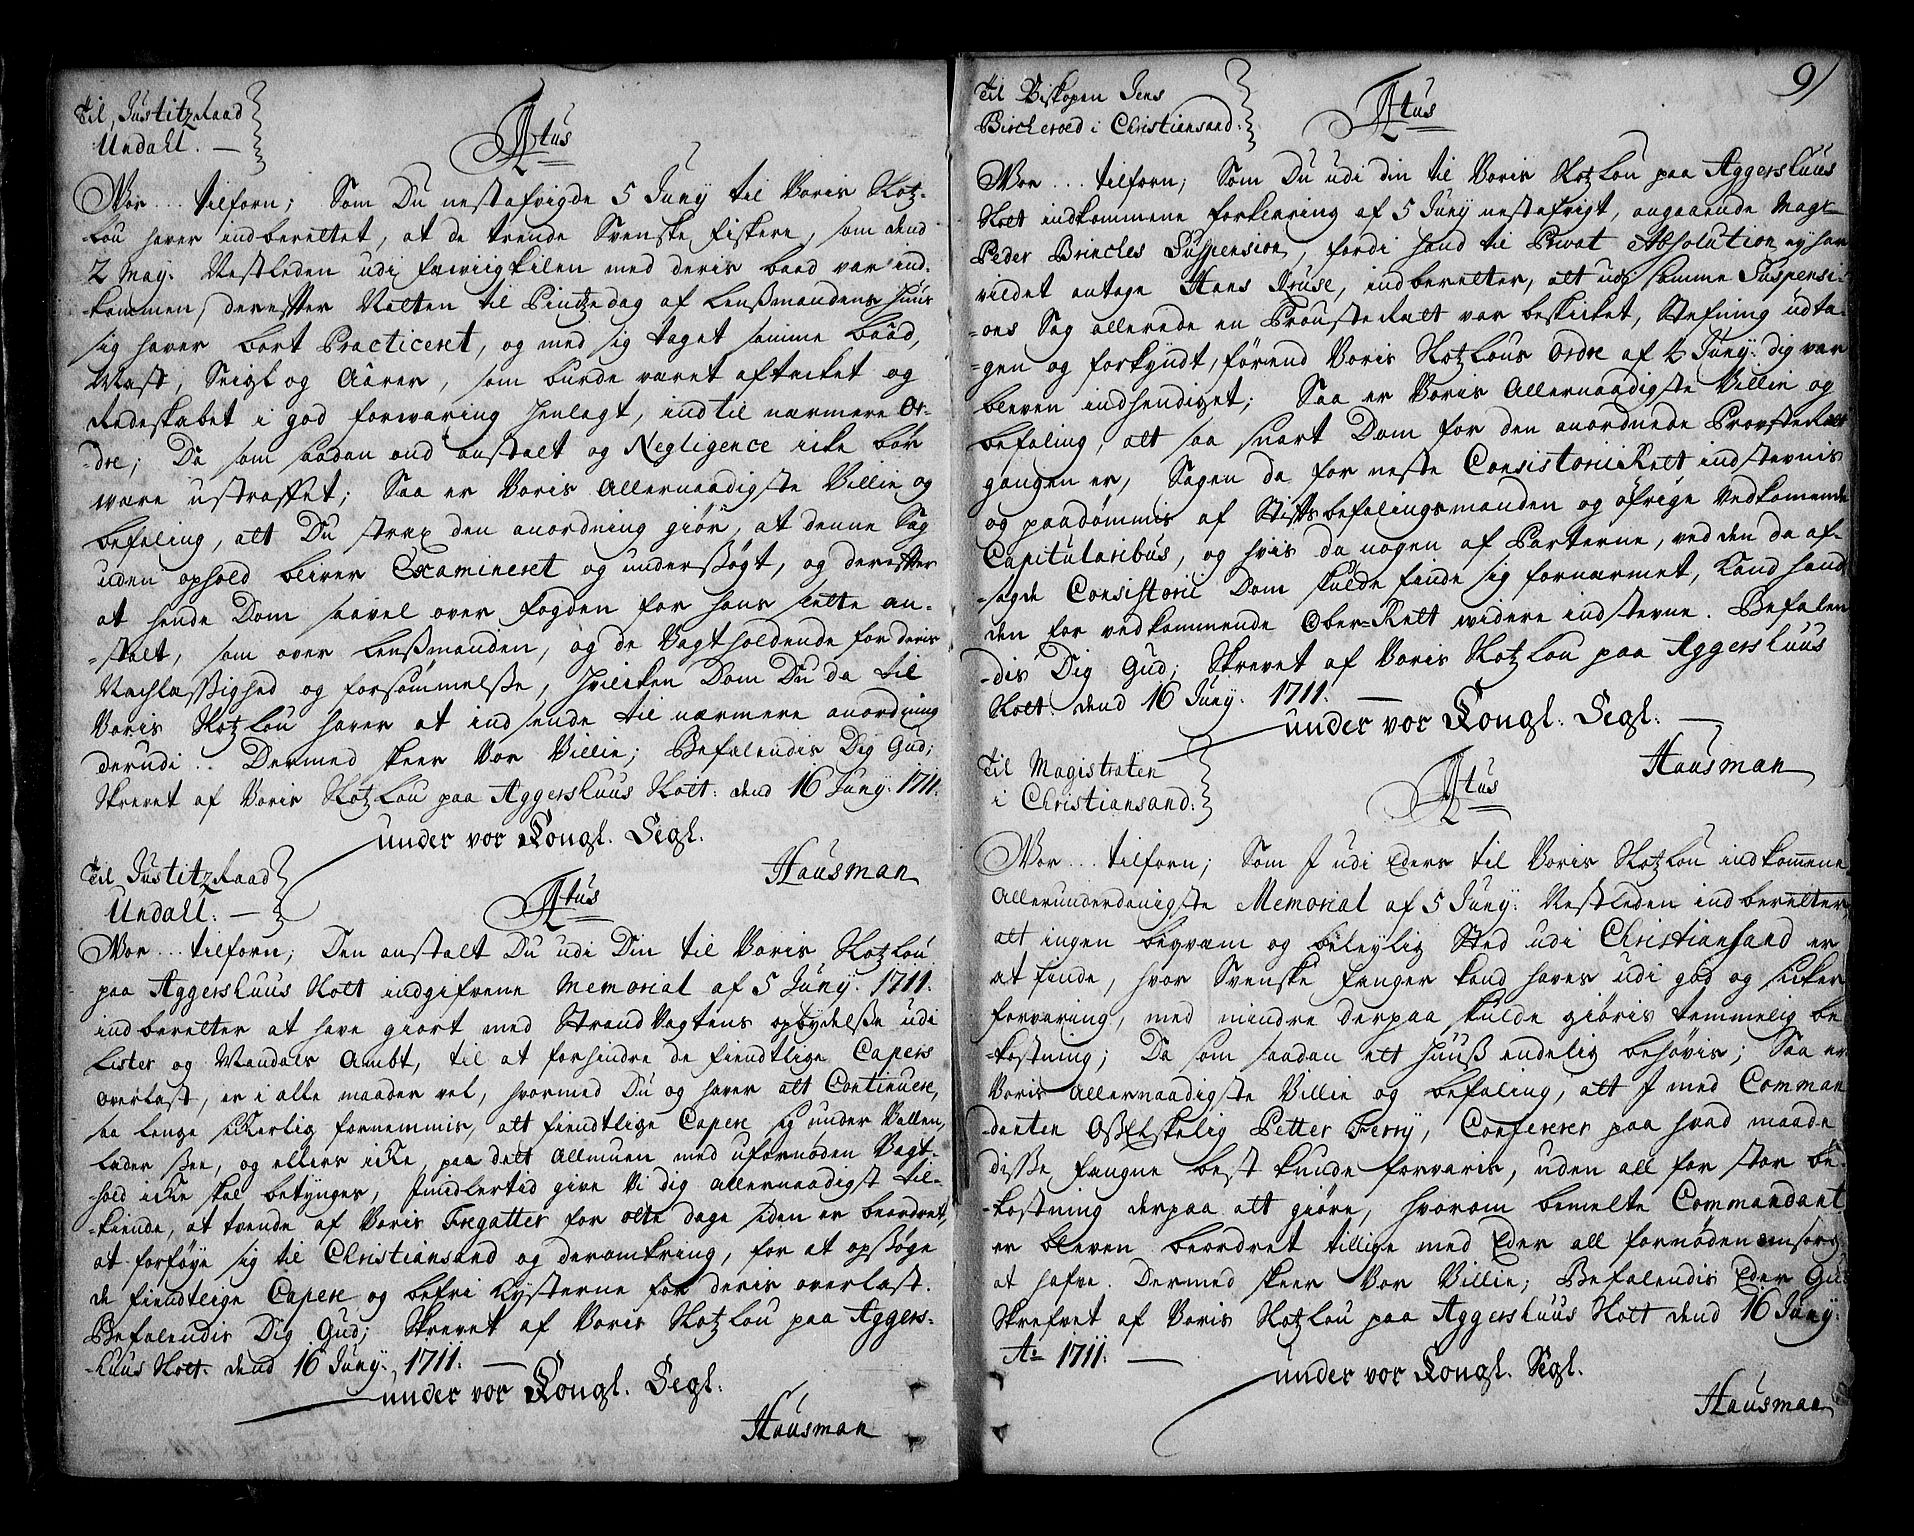 Til Justitz Raad
Undahl. —
Atus
Vor... tilforn; Som Du nestafvigde 5 Juny til Voris Slotz-
-lou haver indberettet, at de trende Svenske fiskere, som dend
2 May. Nestleden udi fæwiigkilen med deris baad var ind-
-kommen, derefter Natten til Pintzedag af Lenßmandens Huus
sig haver bort Practiceret, og med sig taget samme baad,
Mast, Seigl og Aårer, som burde været aftaclet og
Redeskabet i god forwaring henlagt, indtil nærmere Or-
-dre; Da som saadan ond anstalt og Negligence icke bór
være ustraffet; Saa er Voris Allernaadigste Villie og
befaling, att Du strax den anordning giór, at denne Sag
uden ophold bliver Examineret og underßøgt, og derefter
at hende Dom saavel over fogden for hans slette an-
-stalt, som over Lenßmanden, og de Vagtholdende for deris
Nachlaßighed og forsømmelße, Hvilcken Dom Du da til
Voris Slotzlou haver at indsende til nærmere anordning
derudi.. Dermed skeer Vor Villie; Befalendis Dig Gud;
Skrevet af Voris Slotzlou paa Aggershuus Slott. dend 16 Juny. 1711.
under vor Kongl. Segl.
Hausman
Til Justitz Raad
Undall. —
Atus
Vor... tilforn; Den anstalt Du udi Din til Voris Slotzlou
paa Aggershuus Slott indgifvene Memorial af 5 Juny. 1711.
indberetter at have giort med StrandVagtens opbydelße udi
Lister og Mandals Ambt, til at forhindre de fiendtlige Capers
overlast, er i alle maader vel, hvormed Du og haver att Continuere,
saa lenge sickerlig fornemmis, att fiendtlige Capere sig under Vallen,
lader ßee, og ellers icke, paa dett Allmuen med ufornøden Vagt-
-hold icke skal betynges, Jmidlertid give Vi dig allernaadigst til-
-kiende, at tvende af Voris Fregatter for otte dage siden er beordret,
at forføye sig til Christiansand og deromkring, for at opßøge
de fiendtlige Capere og befri Kysterne for deris overlast.
Befalendis Dig Gud; Skrevet af Voris Slotzlou paa Aggers-
-huus Slott. dend 16 Juny. 1711. —
under vor Kongl. Segl.
Hausman
9
Til Biskopen Jens
Bircheroed i Christiansand.
Atus
Vor... tilforn; Som Du udi din til Voris Slotzlou paa Aggershuus
Slott indkommene forklaring af 5 Juny nestafvigt, angaaende Magt
Peder Brincles Suspension, fordi hand til Privat Absolution ey har
vildet antage Hans Kruse, indberetter, att udj samme Suspensi-
-ons Sag allerede en ProusteRætt var beskicket, Stefning udta-
-gen og forkyndt, førend Voris Slotzlous Ordre af 4 Juny. dig var
bleven indhendiget; Saa er Voris Allernaadigste Villie og
befaling, att saa snart Dom for den anordnede ProvsteRætt
gangen er, Sagen da for neste ConsistorieRett indstevnis
og paadømmis af Stiftsbefalingsmanden og øfrige Vedkomende
Capitularibus, og hvis da nogen af Parterne, ved den da af-
-sagde Consistorii Dom skulde finde sig fornærmet, kand hand
den for vedkommende Ober-Rett widere indstevne. Befalen
-dis Dig Gud; Skrevet af Voris Slotzlou paa Aggershuus
Slott. dend 16 Juny. 1711. —
under vor Kongl. Segl. —
Hausman
Til Magistraten
i Christiansand.
Atus
Vor... tilforn; Som J udi Eders til Voris Slotzlou indkomene
Allerunderdanigste Memorial af 5 Juny. Nestleden indberetter
att ingen beqvæm og beleylig Sted udi Christiansand er
at finde, hvor Svenske fanger kand haves udi god og sicker
forvaring, med mindre derpaa skulde giøris temmelig be
-kostning; Da som saadan ett Huuß endelig behøvis; Saa er
Voris Allernaadigste Villie og befaling, att J med Comman
-danten Oß Elskelig Petter Ferry, Confererer paa hvad maade
diße fangne best kunde forvaris, uden all for stor be-
-kostning derpaa att giøre, hvorom bemelte Commandant
er bleven beordret tillige med Eder all fornøden omsorg
at hafve. Dermed skeer Vor Villie; Befalendis Eder Gud
Skrefvet af Voris Slotzlou paa Aggershuus Slott dend 16 Juny.
Ao 1711. —
under vor Kongl. Segl.
Hausman